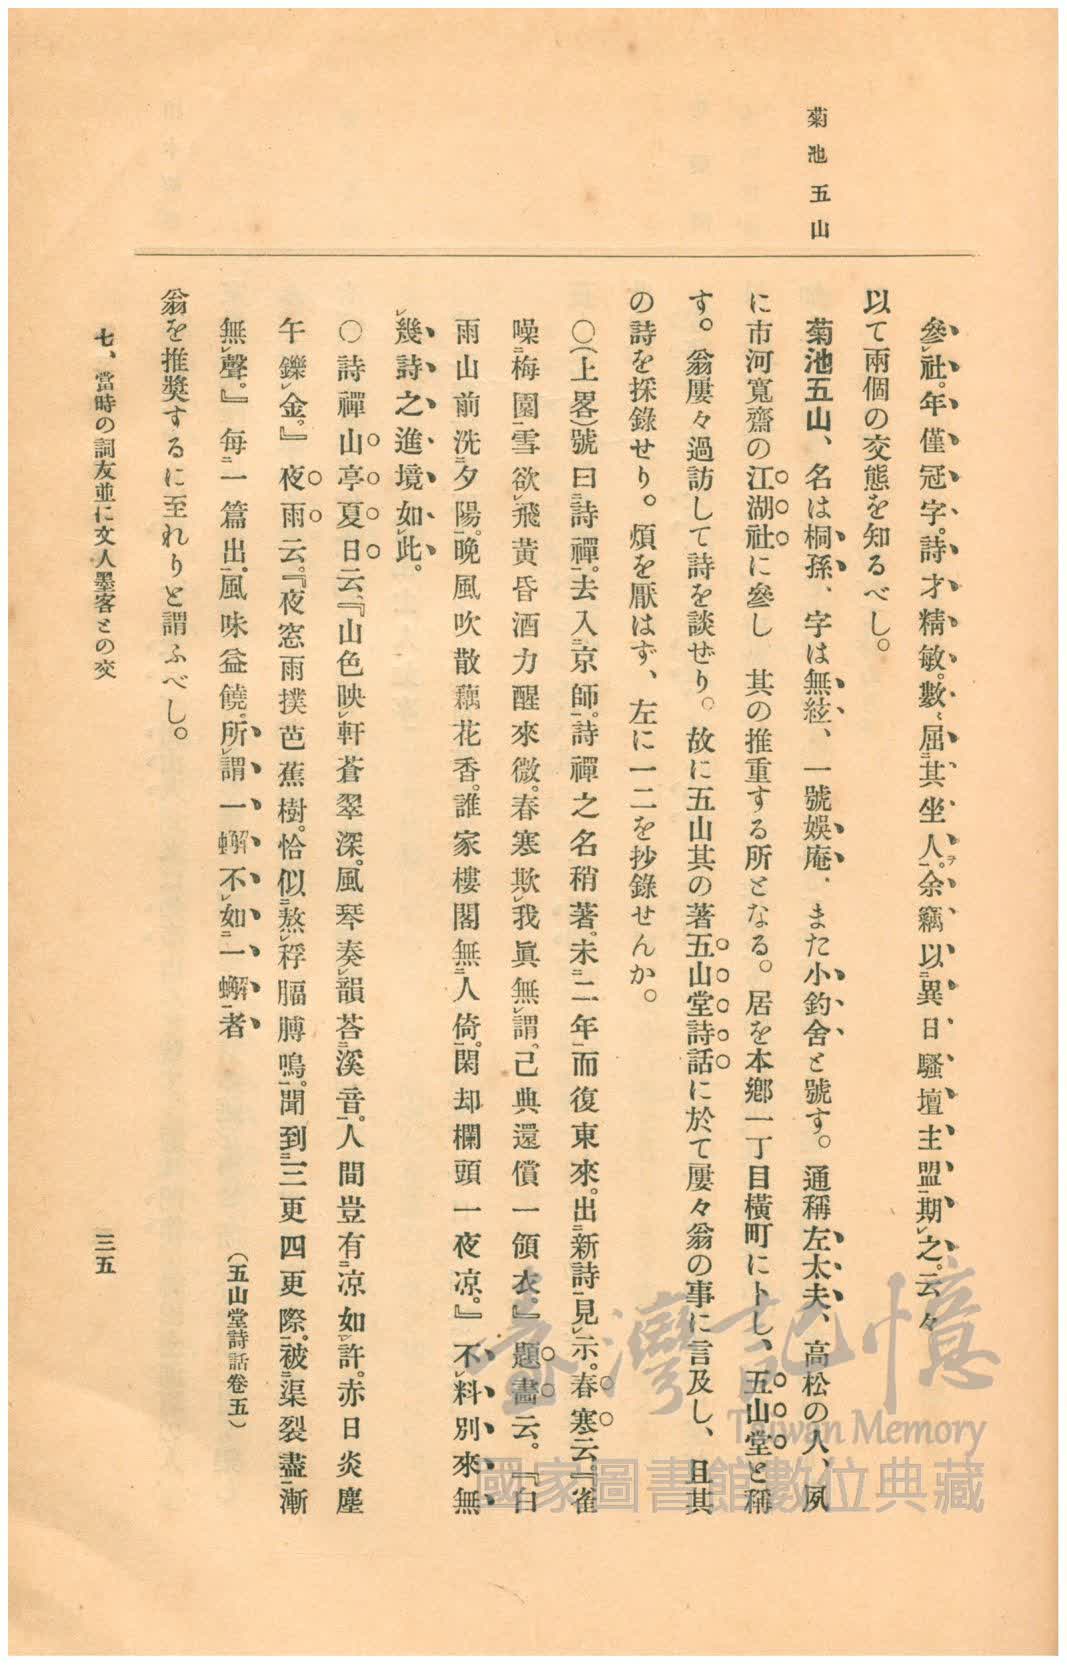 菊池五山
參㆑社。年僅冠字。詩才精敏。數〻屈㆓其坐人㆒。余竊以㆓異日騷壇主盟㆒期㆑之。云々
以て兩個の交態を知るべし。
菊池五山、名は桐孫、字は無絃、一號娛庵、また小釣舍と號す。通稱左太夫、高松の人、夙
に市河寬齋の江湖社に參し　其の推重する所となる。居を本鄕一丁目橫町に卜し、五山堂と稱
す。翁屢々過訪して詩を談ぜり。故に五山其の著五山堂詩話に於て屢々翁の事に言及し、且其
の詩を採錄せり。煩を厭はず、左に一二を抄錄せんか。
〇(上畧)號曰㆓詩禪㆒。去入㆓京師㆒。詩禪之名稍著。未㆓二年㆒而復東來。出㆓新詩㆒見㆑示。春寒云。『雀
噪㆓梅園㆒雪欲㆑飛黃昏酒力醒來微。春寒欺㆑我眞無㆑謂。己典還償一領衣。』題畵云。『白
雨山前洗㆓夕陽㆒。晩風吹散藕花香。誰家樓閣無㆓人倚㆒。閑却欄頭一夜凉。』不㆑料別來無㆓
幾詩之進境如㆑此。
〇詩禪山亭夏日云、『山色映㆑軒蒼翠深。風琴奏㆑韻荅㆓溪音㆒。人間豈有㆓凉如㆑許。赤日炎塵
午鑠㆑金。』夜雨云。『夜窓雨撲芭蕉樹。恰似㆓熬㆑稃腷膊鳴㆒。聞到㆓三更四更際㆒。被㆓渠裂盡㆒漸
無㆑聲。』每㆓一篇出㆒。風味益饒。所㆑謂一蠏不㆑如㆓一蠏㆒者
（五山堂詩話卷五）
翁を推奬するに至れりと謂ふべし。
七、當時の詞友並に文人墨客との交
三五
臺灣記憶
Taiwan Memory
國家圖書館數位典藏